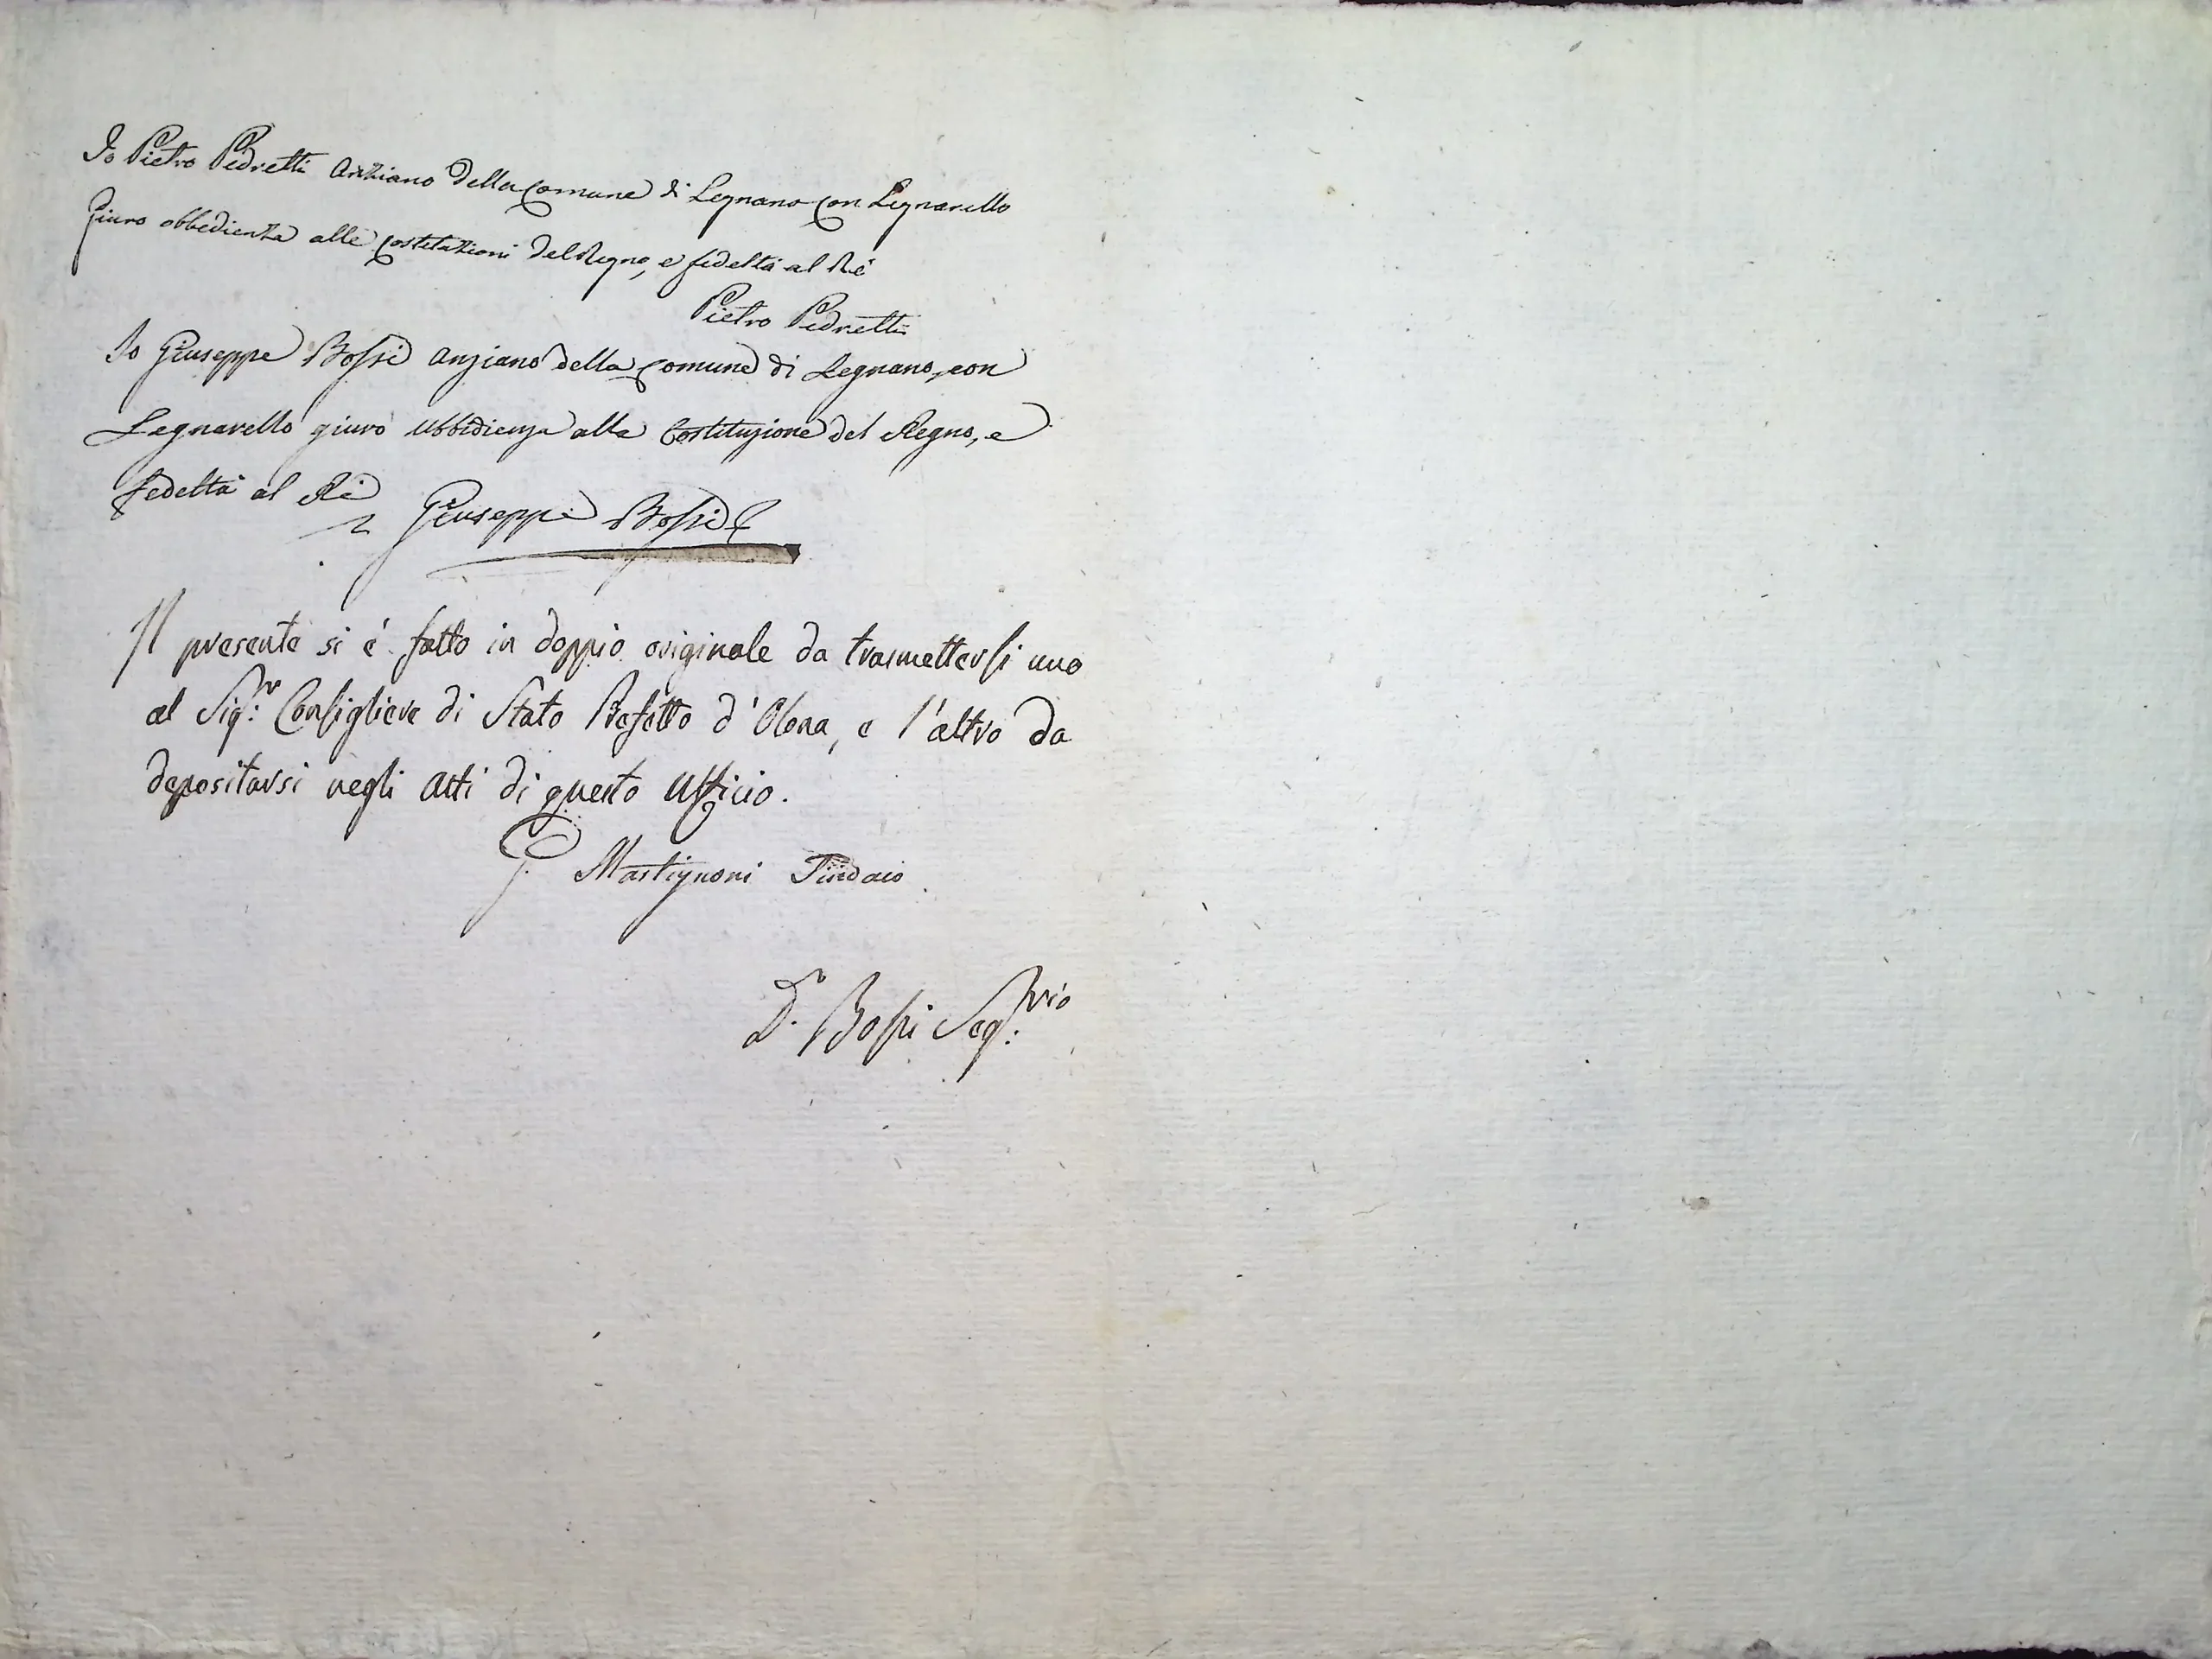 Io Pietro Pedretti Anziano della Comune di Legnano con Legnarello
Giuro obbedienza alle Costituzioni del Regno, e fedeltà al Ré
Pietro Pedretti
Io Giuseppe Bossi Anziano della Comune di Legnano, con
Legnarello giuro ubbidienza alla Costituzione del Regno, e
fedeltà al Rè
Giuseppe Bossi
Il presente si é fatto in doppio originale da trasmettersi uno
al Sig.r Consigliere di Stato Prefetto d'Olona, e l'altro da
depositarsi negli Atti di questo Ufficio.
G. Martignoni Sindaco
D.r Bossi Seg.rio